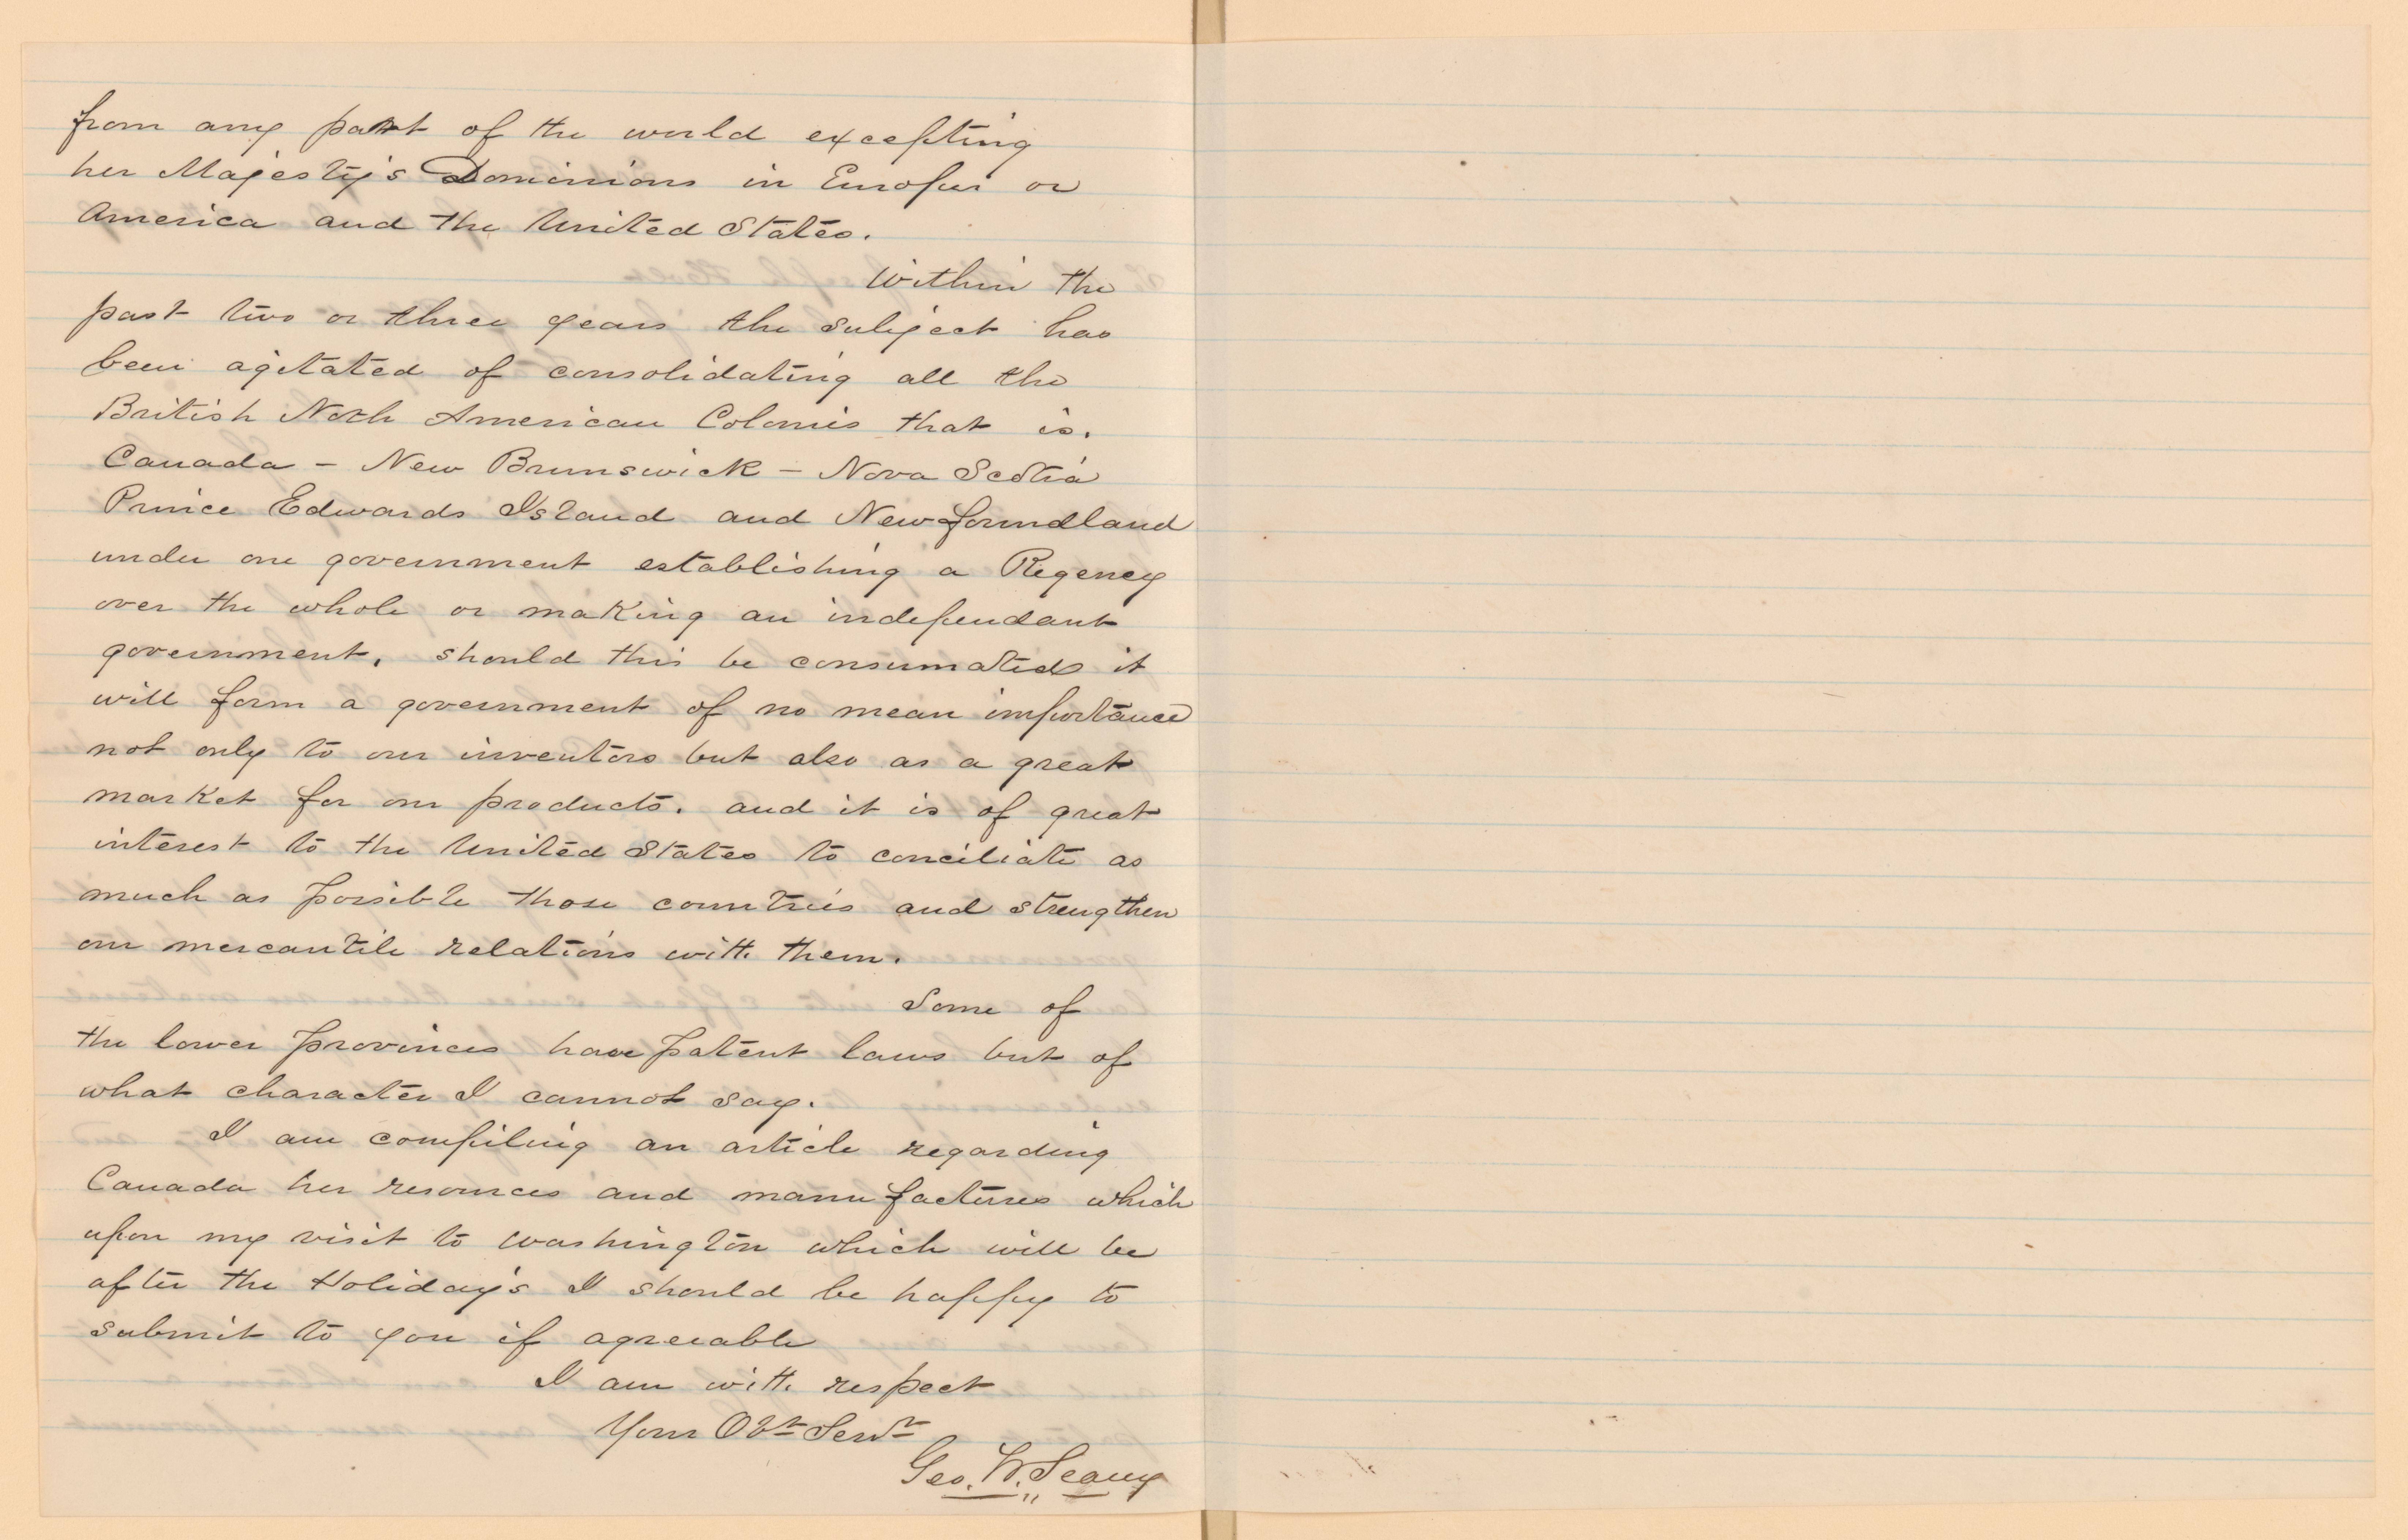 from any part of the world excepting
her Majesty's Dominions in Europe or
America and the United States.
Within the
past two or three years the subject has
been agitated of consolidating all the
British North American Colonies that is.
Canada – New Brunswick – Nova Scotia
Prince Edwards Island and Newfoundland
under one government establishing a Regency
over the whole or making an independant
government, should this be consumated it
will form a government of no mean importance
not only to our inventors but also as a great
market for our products. and it is of great
interest to the United States to conciliate as
much as possible those countries and strengthen
our mercantile relations with them.
Some of
the lower provinces have patent laws but of
what character I cannot say.
I am compiling an article regarding
Canada her resources and manufactures which
upon my visit to Washington which will be
after the Holiday's I should be happy to
submit to you if agreeable
I am with respect
Your Obt Servt
Geo. W.